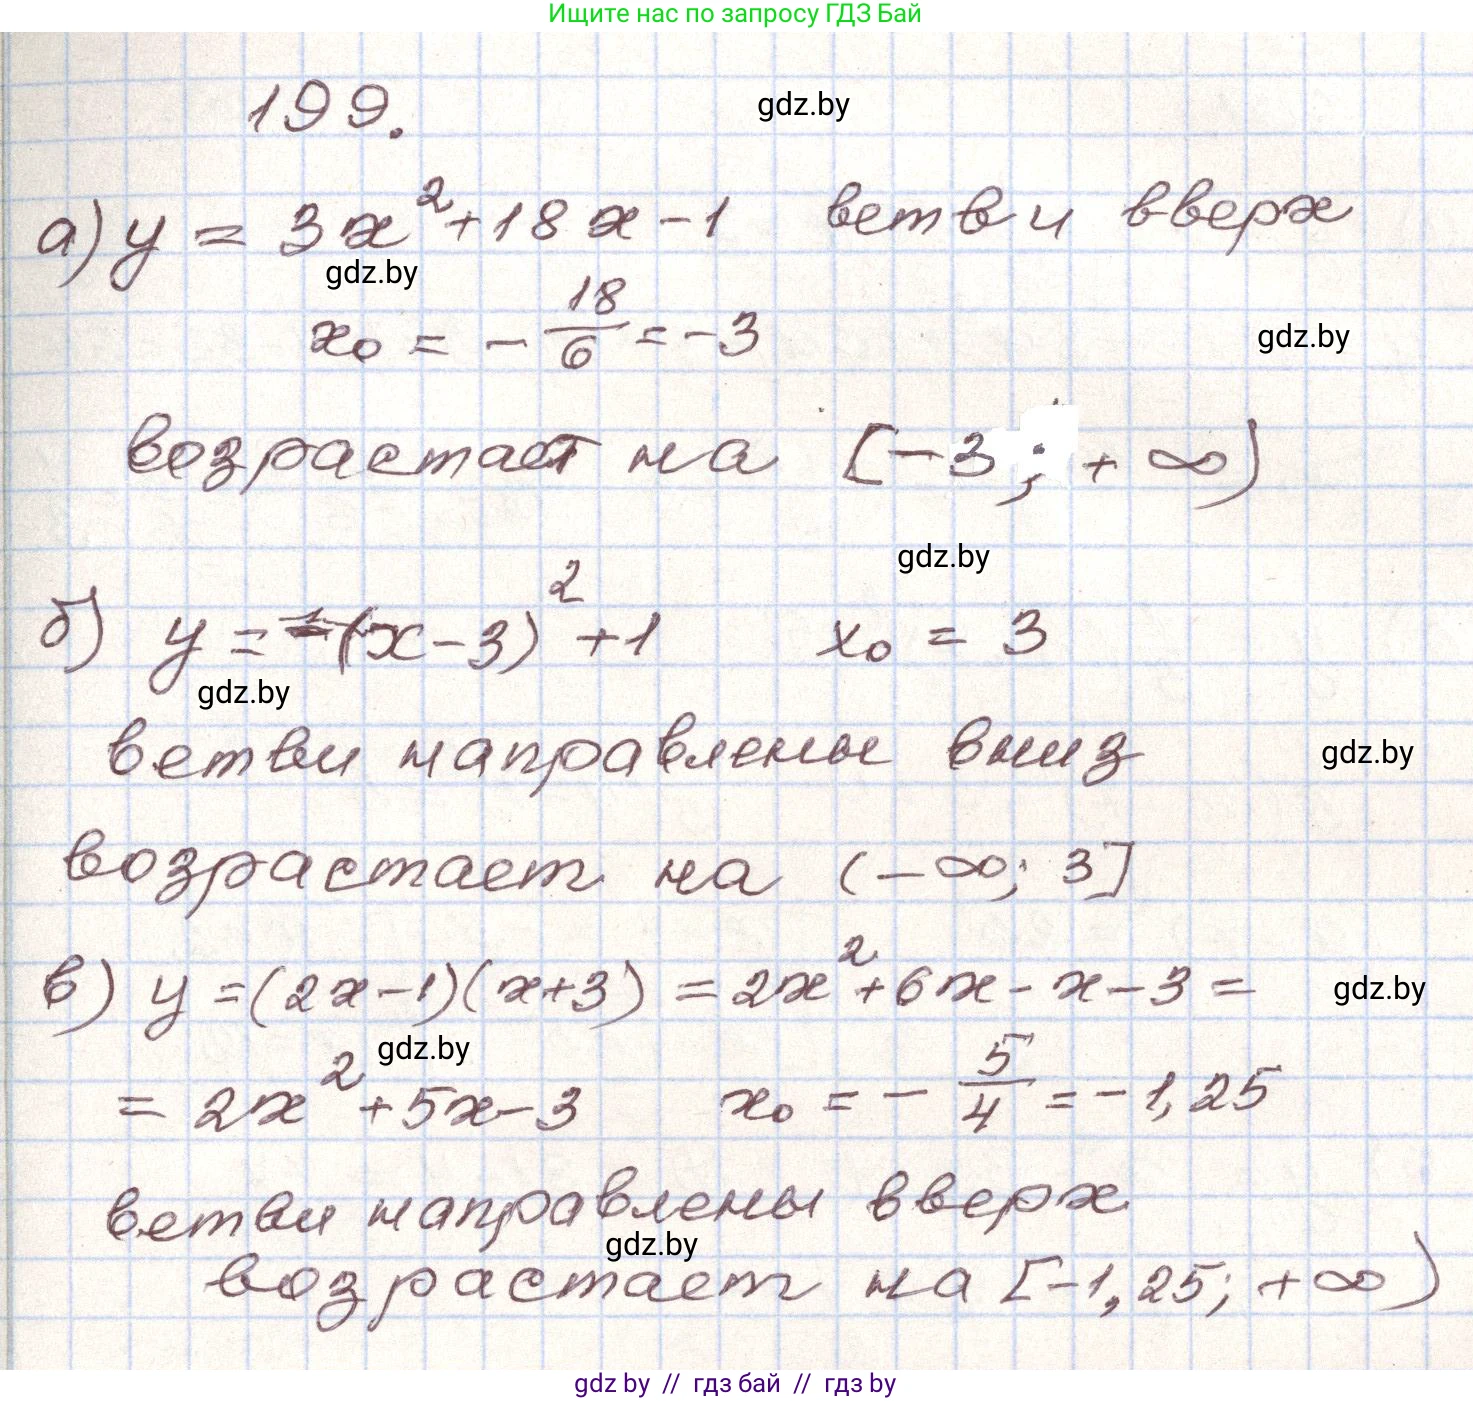 Ищите нас по запросу ГДЗ Бай
199.
gdz.by
а) y = 3x² + 18x - 1 ветви вверх
gdz.by
x₀ = - 18/6 = -3
gdz.by
возрастает на [-3; +∞)
gdz.by
б) y = -(x-3)² + 1 x₀ = 3
gdz.by
ветви направлены вниз
gdz.by
возрастает на (-∞; 3]
в) y = (2x-1)(x+3) = 2x² + 6x - x - 3 =
gdz.by
gdz.by
= 2x² + 5x - 3 x₀ = - 5/4 = -1,25
ветви направлены вверх
gdz.by
возрастает на [-1,25; +∞)
gdz by // гдз бай // гдз by